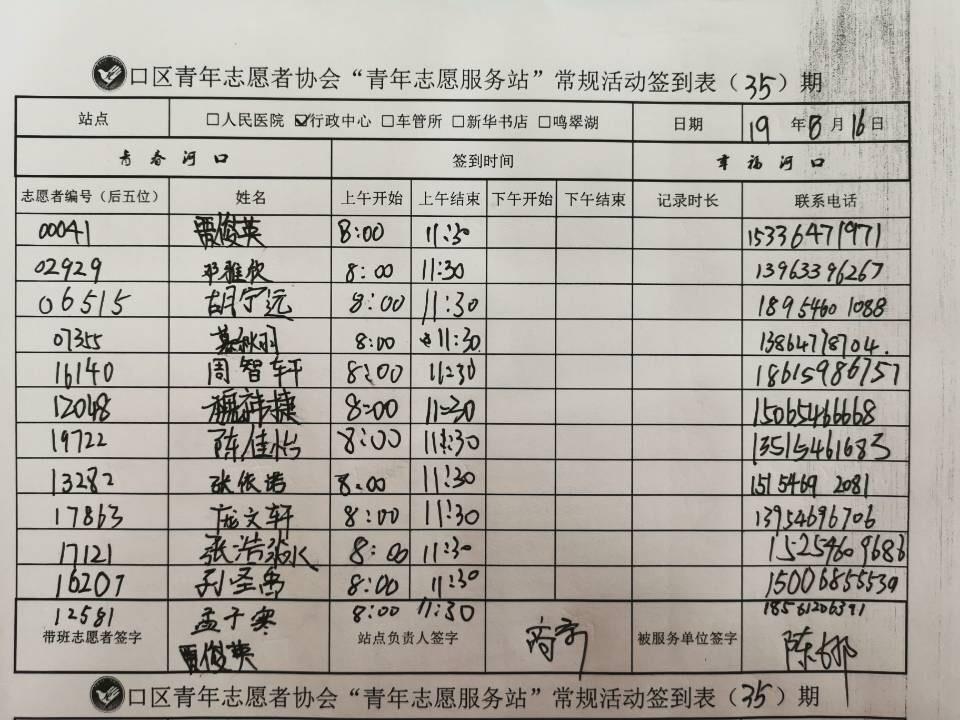 口区青年志愿者协会“青年志愿服务站”常规活动签到表（35）期
站点 □人民医院 ☑行政中心 □车管所 □新华书店 □鸣翠湖 日期 19 年 8 月 16 日
青春河口 签到时间 幸福河口
志愿者编号（后五位） 姓名 上午开始 上午结束 下午开始 下午结束 记录时长 联系电话
00041 贾俊英 8:00 11:30 15336471971
02929 邓雅欣 8:00 11:30 13963396267
06515 胡宁远 8:00 11:30 18954601088
07355 慕秋羽 8:00 11:30 13864778704.
16140 周智轩 8:00 11:30 18615986757
12048 祥捷 8:00 11:30 15065466668
19722 陈佳怡 8:00 11:30 13515461683
13282 张依诺 8:00 11:30 1515469 2081
17863 庞文轩 8:00 11:30 13954696706
17121 张浩 8:00 11:30 15254609686
16207 孙圣禹 8:00 11:30 15006855539
12581 孟子寒 8:00 11:30 18561206391
带班志愿者签字 贾俊英 站点负责人签字 被服务单位签字 陈娜
口区青年志愿者协会“青年志愿服务站”常规活动签到表（35）期